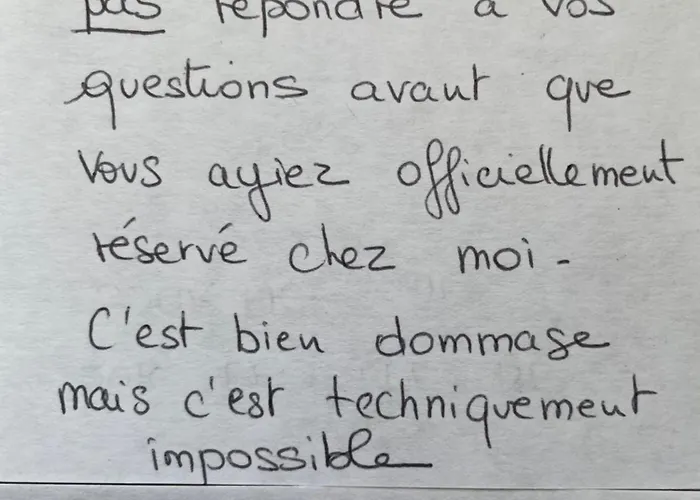 pas répondre à vos
questions avant que
vous ayiez officiellement
réservé chez moi -
C'est bien dommage
mais c'est techniquement
impossible